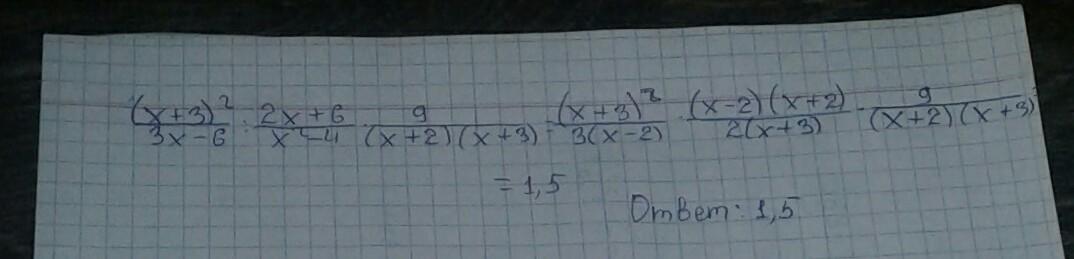 (x+3)²/(3x-6) : (2x+6)/(x²-4) · 9/((x+2)(x+3)) = (x+3)²/(3(x-2)) · ((x-2)(x+2))/(2(x+3)) · 9/((x+2)(x+3))
= 1,5
Ответ: 1,5